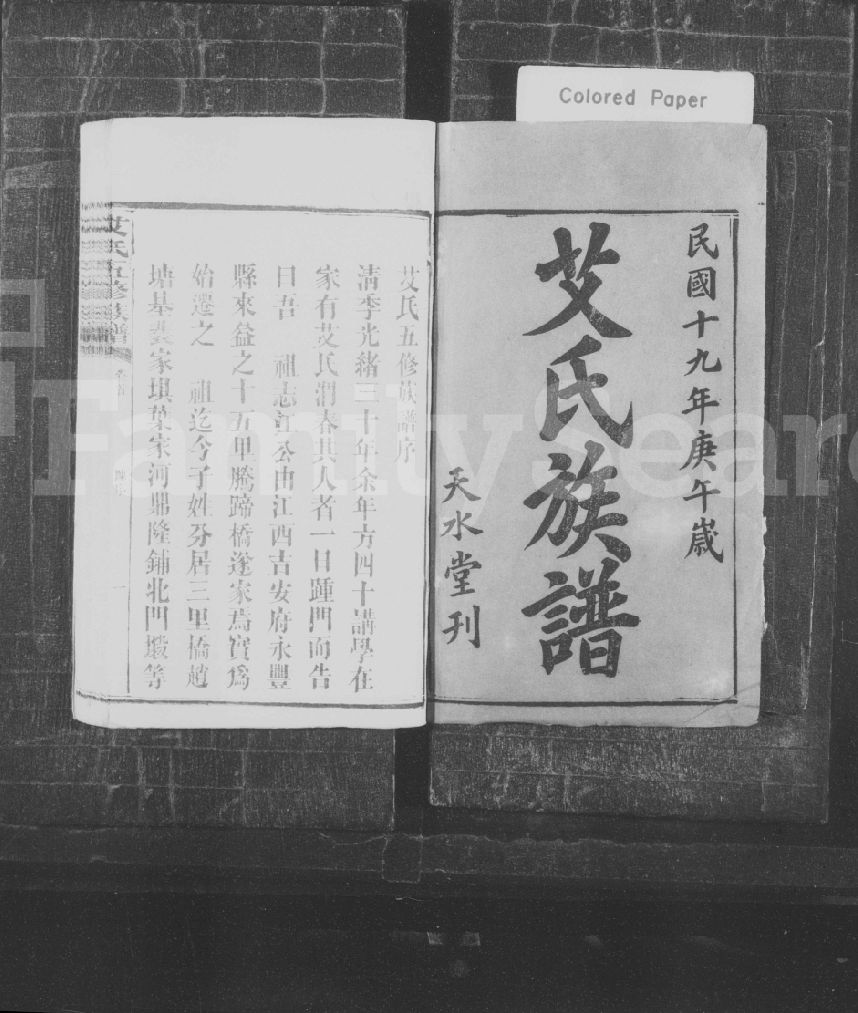 Colored Paper
民國十九年庚午歲
艾氏族譜
天水堂刊
艾氏五修族譜序
清季光緒三十年余年方四十講學在
家有艾氏潤春其人者一日踵門而告
曰吾 祖志江公由江西吉安府永豐
縣來益之十五里騰蹄橋遂家焉實爲
始遷之 祖迄今子姓分居三里橋趙
塘基裴家埧葉家河鼎隆鋪北門塅等
艾氏五修族譜
卷首
一
FamilySearch